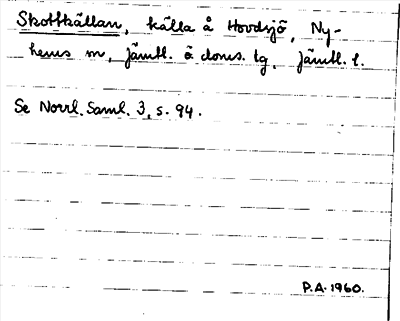 Skottkällan, källa å Hovdsjö, Ny-
hems sn, Jämtl. ö. doms. tg. Jämtl. l.
Se Norrl. Saml. 3, s. 94.
P.A. 1960.